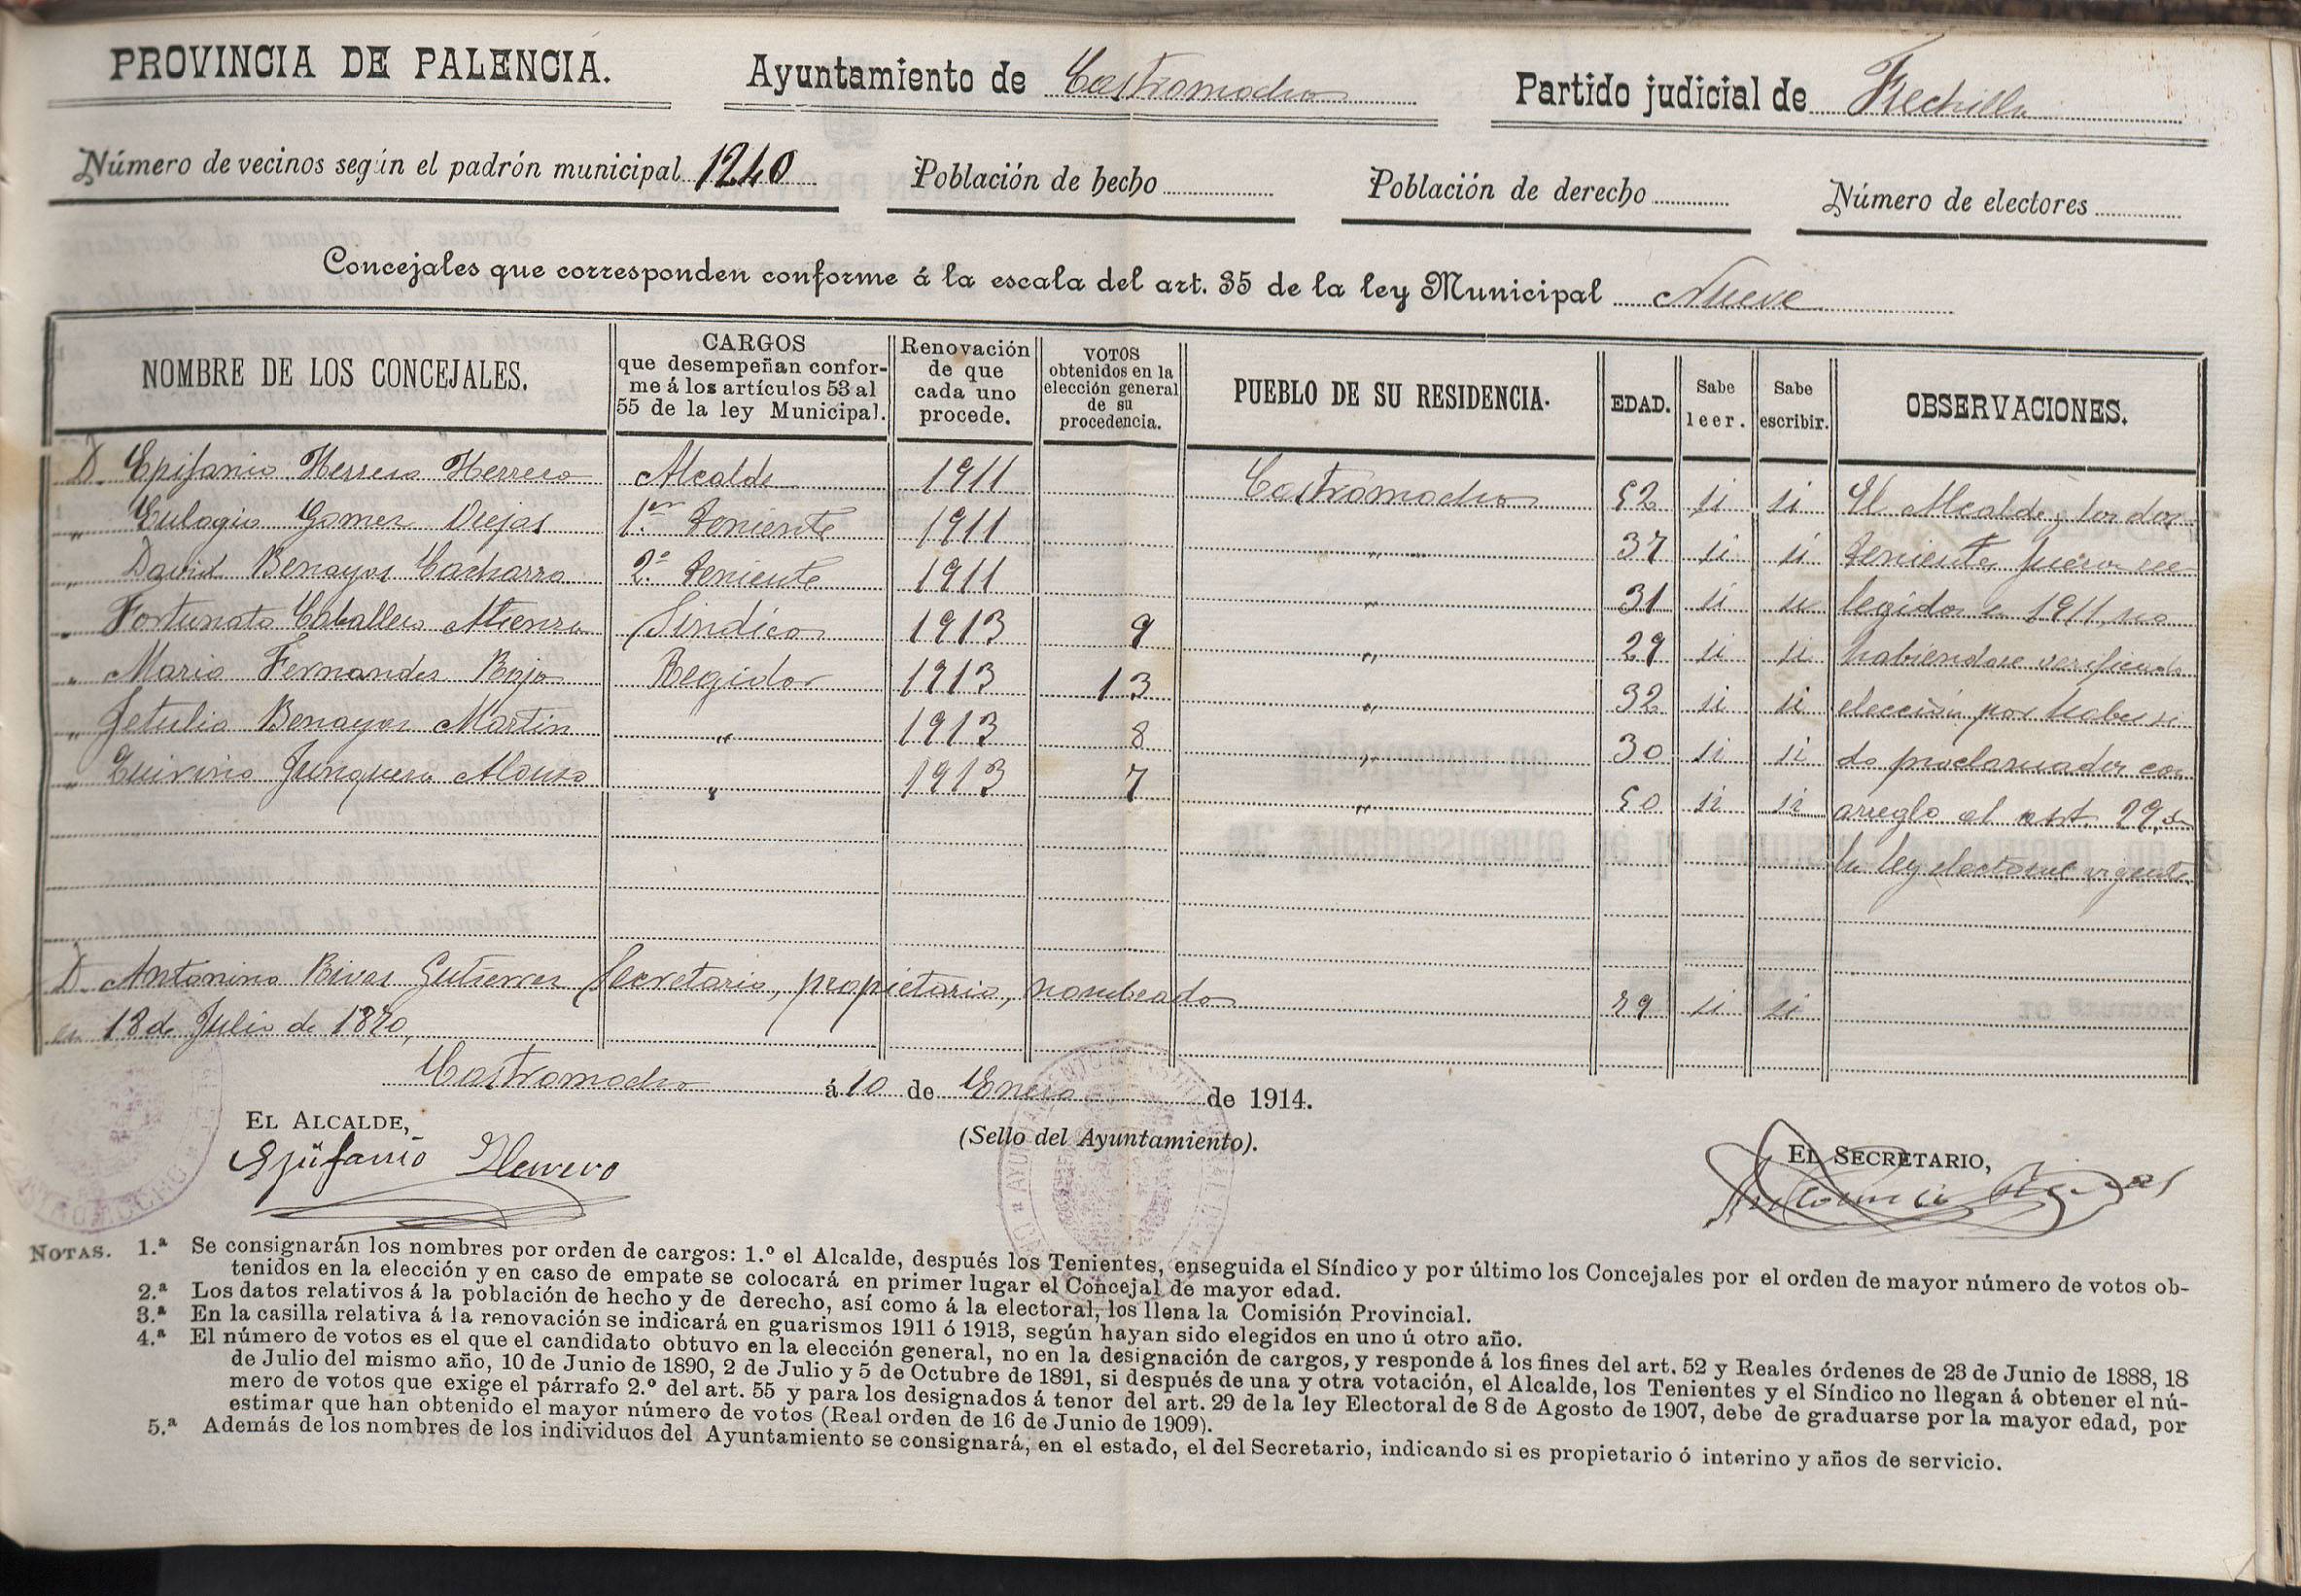 PROVINCIA DE PALENCIA.
Ayuntamiento de Castromocho
Partido judicial de Frechilla
Número de vecinos según el padrón municipal 1240
Población de hecho
Población de derecho
Número de electores
Concejales que corresponden conforme á la escala del art. 35 de la ley Municipal Nueve
NOMBRE DE LOS CONCEJALES.
CARGOS
que desempeñan confor-
me á los artículos 53 al
55 de la ley Municipal.
Renovación
de que
cada uno
procede.
VOTOS
obtenidos en la
elección general
de su
procedencia.
PUEBLO DE SU RESIDENCIA.
EDAD.
Sabe
leer.
Sabe
escribir.
OBSERVACIONES.
D. Epifanio Herrero Herrero Alcalde 1911 Castromocho 52 si si El Alcalde y los dos
" Eulogio Gomez Diejas 1.er Teniente 1911 " 37 si si tenientes fueron ee
" David Benayas Cacharro 2.º Teniente 1911 " 31 si si legidos en 1911, no
" Fortunato Caballero Atienza Sindico 1913 9 " 29 si si habiendose verificado
" Mario Fernandez Rojo Regidor 1913 13 " 32 si si elección por haber si
" Getulio Benayas Martin " 1913 8 " 30 si si do proclamados con
" Quirino Junquera Alonso " 1913 7 " 50 si si arreglo al art. 29 de
la ley electoral vigente.
D. Antonino Rivas Gutierrez Secretario, propietario, nombrado si si
en 18 de Julio de
Castromocho á 10 de Enero de 1914.
EL ALCALDE,
(Sello del Ayuntamiento).
EL SECRETARIO,
Epifanio Herrero
NOTAS. 1.ª Se consignarán los nombres por orden de cargos: 1.º el Alcalde, después los Tenientes, enseguida el Síndico y por último los Concejales por el orden de mayor número de votos ob-
tenidos en la elección y en caso de empate se colocará en primer lugar el Concejal de mayor edad.
2.ª Los datos relativos á la población de hecho y de derecho, así como á la electoral, los llena la Comisión Provincial.
3.ª En la casilla relativa á la renovación se indicará en guarismos 1911 ó 1913, según hayan sido elegidos en uno ú otro año.
4.ª El número de votos es el que el candidato obtuvo en la elección general, no en la designación de cargos, y responde á los fines del art. 52 y Reales órdenes de 23 de Junio de 1888, 18
de Julio del mismo año, 10 de Junio de 1890, 2 de Julio y 5 de Octubre de 1891, si después de una y otra votación, el Alcalde, los Tenientes y el Síndico no llegan á obtener el nú-
mero de votos que exige el párrafo 2.º del art. 55 y para los designados á tenor del art. 29 de la ley Electoral de 8 de Agosto de 1907, debe de graduarse por la mayor edad, por
estimar que han obtenido el mayor número de votos (Real orden de 16 de Junio de 1909).
5.ª Además de los nombres de los individuos del Ayuntamiento se consignará, en el estado, el del Secretario, indicando si es propietario ó interino y años de servicio.